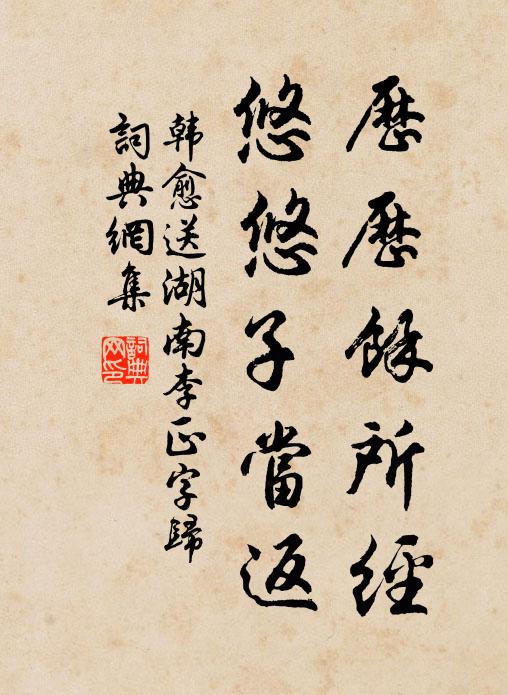 歷歷餘所經
悠悠子當返
韓愈送湖南李正字歸
詞典網集
詞典
网印